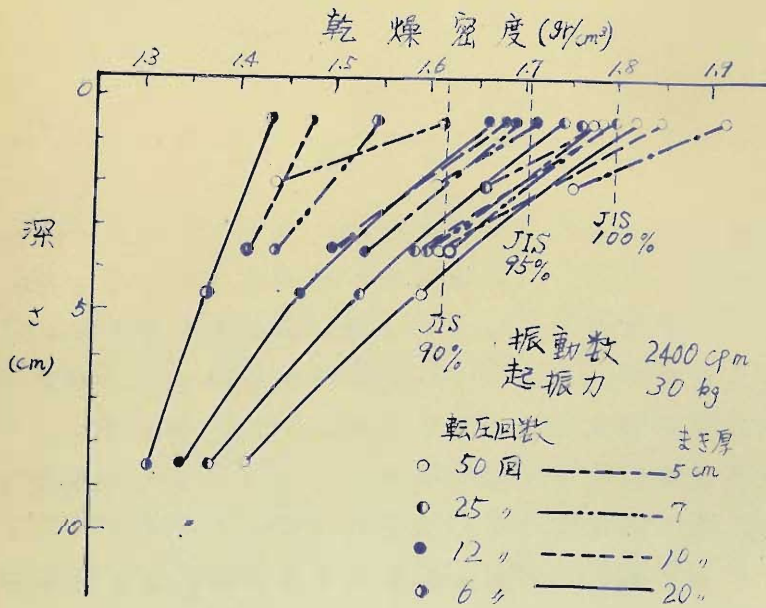 乾燥密度 (gr/cm³)
1.3 1.4 1.5 1.6 1.7 1.8 1.9
0
深さ
(cm)
5
10
JIS
90%
JIS
95%
JIS
100%
振動数 2400 cpm
起振力 30 kg
転圧回数 まき厚
50回 5cm
25 〃 7
12 〃 10 〃
6 〃 20 〃